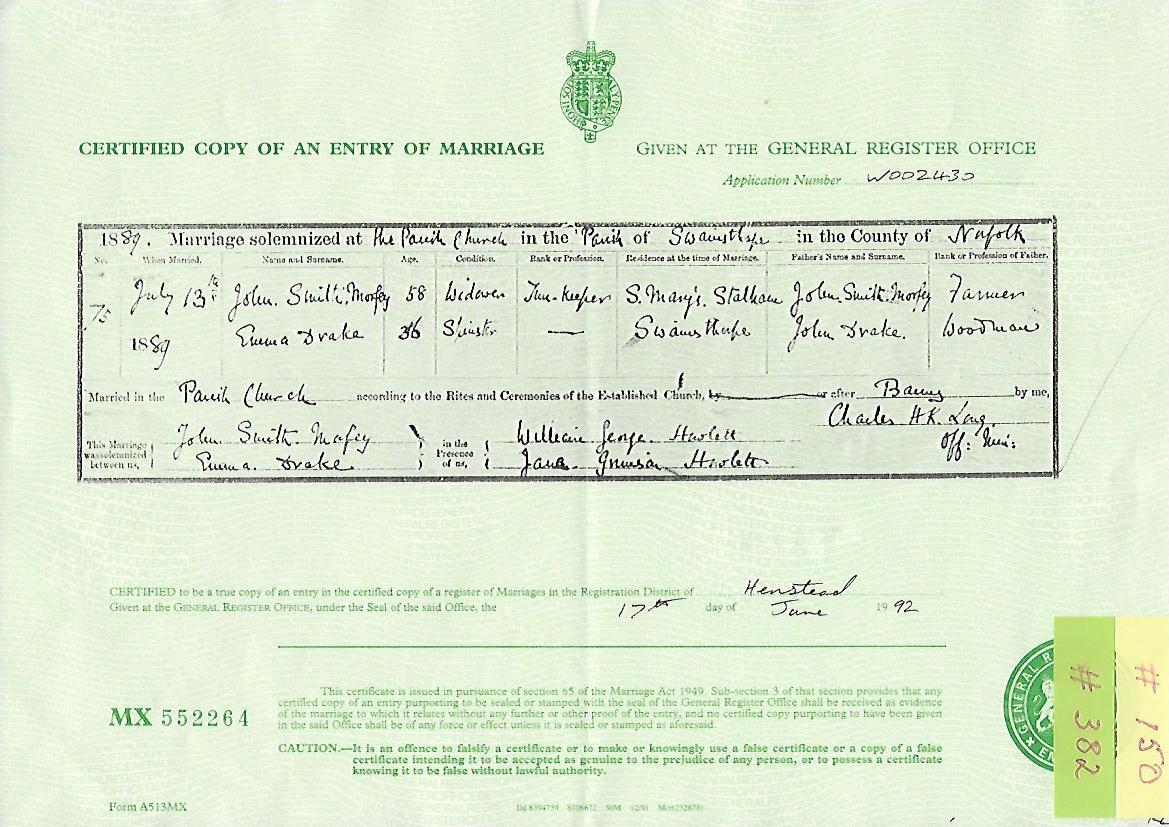 CERTIFIED COPY OF AN ENTRY OF MARRIAGE
GIVEN AT THE GENERAL REGISTER OFFICE
Application Number W002430
1889. Marriage solemnized at the Parish Church in the Parish of Swainsthorpe in the County of Norfolk
No. When Married. Name and Surname. Age. Condition. Rank or Profession. Residence at the time of Marriage. Father's Name and Surname. Rank or Profession of Father.
75 July 13th John. Smith. Morfey 58 Widower Inn-keeper S. Mary's. Stalham John. Smith. Morfey Farmer
1889 Emma Drake 36 Spinster — Swainsthorpe John Drake. Woodman
Married in the Parish Church according to the Rites and Ceremonies of the Established Church, by or after Banns by me,
Charles H.K. Long
Off: Min:
This Marriage was solemnized between us, John Smith. Morfey in the Presence of us, William George. Howlett
Emma. Drake Howlett
CERTIFIED to be a true copy of an entry in the certified copy of a register of Marriages in the Registration District of Henstead
Given at the GENERAL REGISTER OFFICE, under the Seal of the said Office, the 17th day of June 1992
This certificate is issued in pursuance of section 65 of the Marriage Act 1949. Sub-section 3 of that section provides that any
certified copy of an entry purporting to be sealed or stamped with the seal of the General Register Office shall be received as evidence
of the marriage to which it relates without any further or other proof of the entry, and no certified copy purporting to have been given
in the said Office shall be of any force or effect unless it is sealed or stamped as aforesaid.
MX 552264
CAUTION.—It is an offence to falsify a certificate or to make or knowingly use a false certificate or a copy of a false
certificate intending it to be accepted as genuine to the prejudice of any person, or to possess a certificate
knowing it to be false without lawful authority.
GENERAL R
# 382
# 150
Form A513MX
Dd 8394759 8106672 50M 12/91 Mcr(2328781